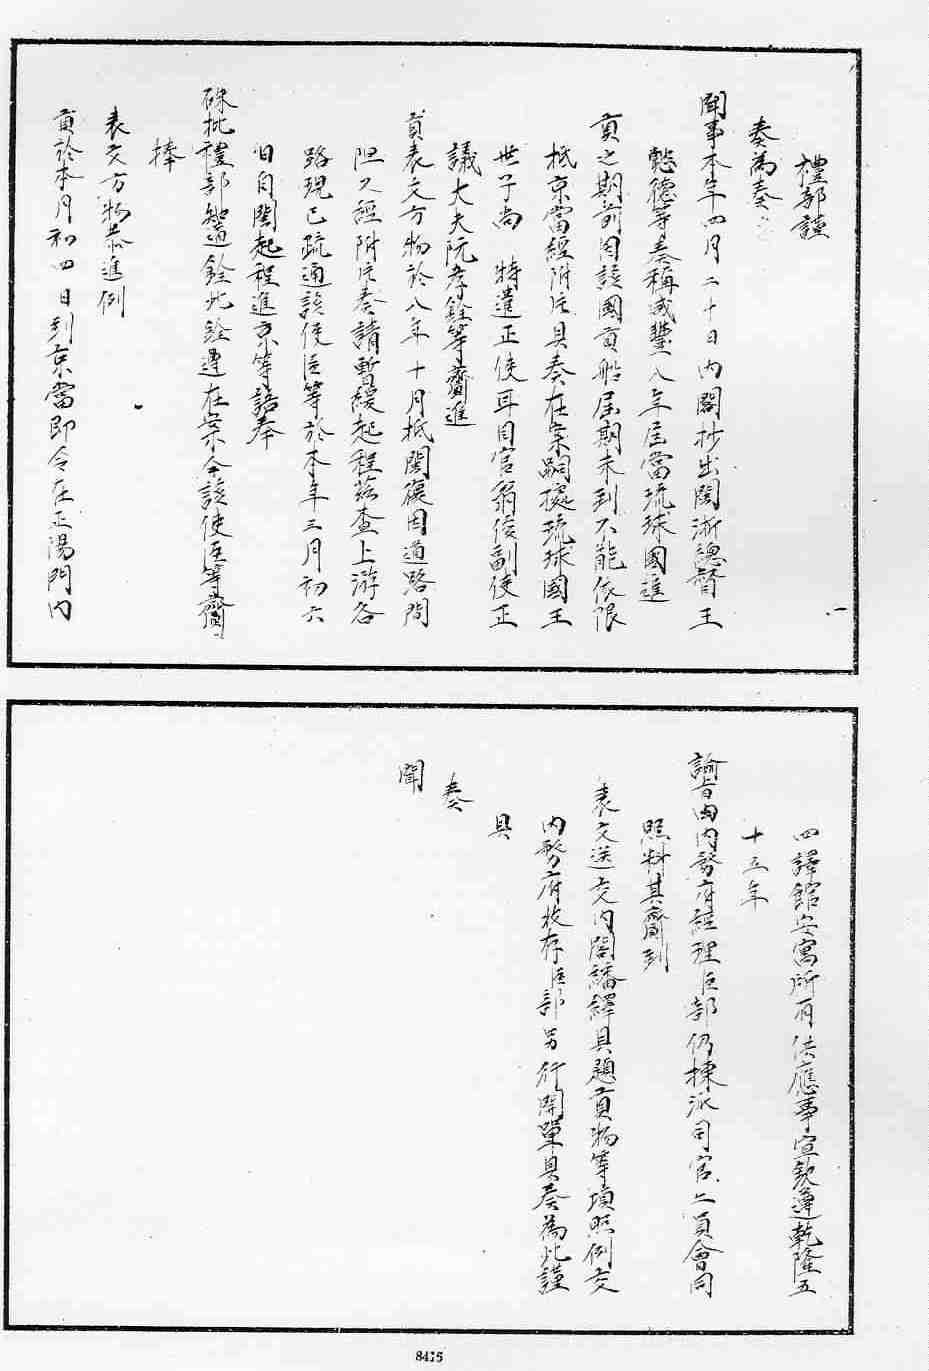 禮部謹
奏為奏
聞事本年四月二十日內閣抄出閩浙總督王
懿德等奏稱咸豐八年屆當琉球國進
貢之期前因該國貢船屆期未到不能依限
抵京當經附片具奏在案嗣據琉球國王
世子尚 特遣正使耳目官翁俊副使正
議大夫阮孝銓等齎進
貢表文方物於八年十月抵閩復因道路間
阻又經附片奏請暫緩起程茲查上游各
路現已疏通該使臣等於本年三月初六
日自閩起程進京等語奉
硃批禮部知道欽此欽遵在案今該使臣等齎
捧
表文方物恭進例
貢於本月初四日到京當即令在正陽門內
四譯館安寓所有供應事宜欽遵乾隆五
十三年
諭旨由內務府經理臣部仍揀派司官二員會同
照料其齎到
表文送交內閣繙繹具題貢物等項照例交
內務府收存臣部另行開單具奏為此謹
具
奏
聞
8415